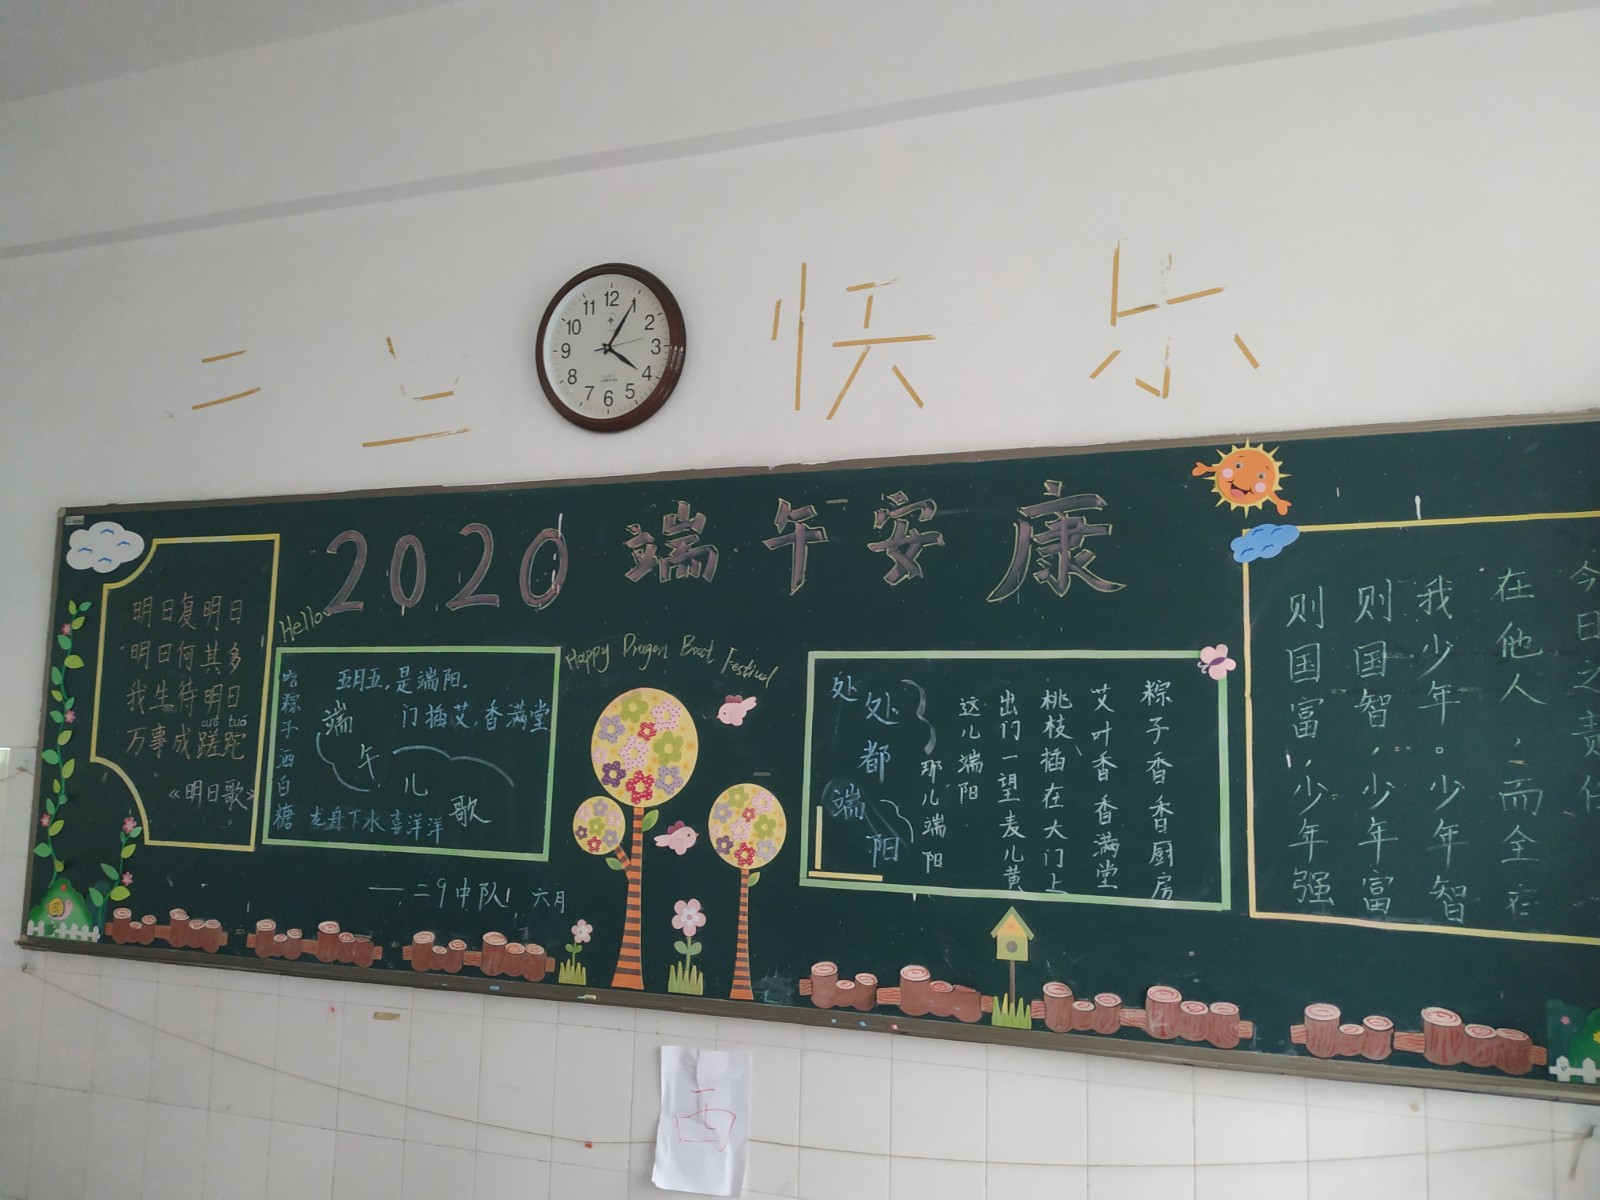 二
快 乐
12
1
2
3
4
5
6
7
8
9
10
11
2020 端午安康
明日复明日
明日何其多
我生待明日
万事成蹉跎
cuō tuó
《明日歌》
Hello
五月五,是端阳.
门插艾,香满堂
吃粽子洒白糖
龙舟下水喜洋洋
端午儿歌
——二9中队! 六月
Happy Dragon Boat Festival
粽子香香厨房
艾叶香香满堂
桃枝插在大门上
出门一望麦儿黄
这儿端阳
那儿端阳
处处都端阳
今日之责任
在他人,而全在
我少年。少年智
则国智,少年富
则国富,少年强
西